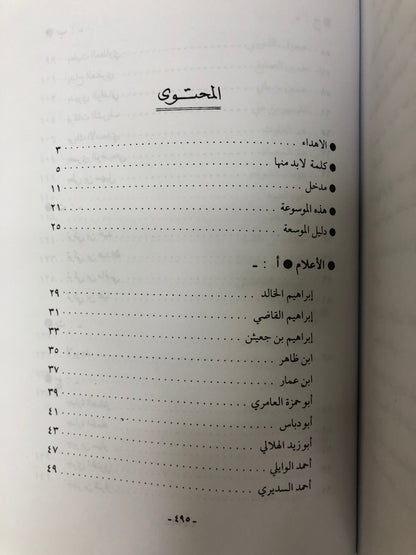 المحتوى
● الاهداء ٣
● كلمة لابد منها ٥
● مدخل ١١
● هذه الموسوعة ٢١
● دليل الموسعة ٢٥
● الأعلام ● أ : -
إبراهيم الخالد ٢٩
إبراهيم القاضي ٣١
إبراهيم بن جعيثن ٣٣
ابن ظاهر ٣٥
ابن عمار ٣٧
أبو حمزة العامري ٣٩
أبودباس ٤١
أبوزيد الهلالي ٤٣
أحمد الوايلي ٤٧
أحمد السديري ٤٩
- ٤٩٥ -